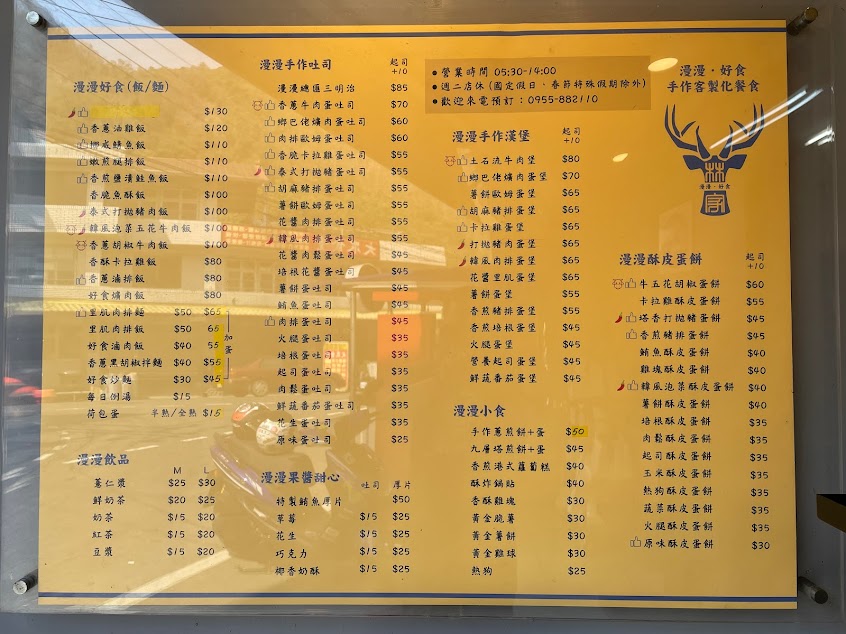 漫漫好食(飯/麵)
$130
香蔥油雞飯 $120
挪威鯖魚飯 $110
嫩煎腿排飯 $110
香煎鹽漬鮭魚飯 $110
香脆魚酥飯 $100
泰式打拋豬肉飯 $100
韓風泡菜五花牛肉飯 $100
香蔥胡椒牛肉飯 $100
香酥卡拉雞飯 $80
香蔥滷排飯 $80
好食爌肉飯 $80
里肌肉排麵 $50 $65
里肌肉排飯 $50 65
好食滷肉飯 $40 55
香蔥黑胡椒拌麵 $40 $55
好食炒麵 $30 $45
加蛋
每日例湯 $15
荷包蛋 半熟/全熟 $15
漫漫飲品
M L
薏仁漿 $25 $30
鮮奶茶 $20 $25
奶茶 $15 $20
紅茶 $15 $20
豆漿 $15 $20
漫漫手作吐司 起司+10
漫漫總匯三明治 $85
香蔥牛肉蛋吐司 $70
鄉巴佬爌肉蛋吐司 $60
肉排歐姆蛋吐司 $60
香脆卡拉雞蛋吐司 $55
泰式打拋豬蛋吐司 $55
胡麻豬排蛋吐司 $55
薯餅歐姆蛋吐司 $55
花醬肉排蛋吐司 $55
韓風肉排蛋吐司 $55
花醬肉鬆蛋吐司 $45
培根花醬蛋吐司 $45
薯餅蛋吐司 $45
鮪魚蛋吐司 $45
肉排蛋吐司 $45
火腿蛋吐司 $35
培根蛋吐司 $35
起司蛋吐司 $35
肉鬆蛋吐司 $35
鮮蔬番茄蛋吐司 $35
花生蛋吐司 $35
原味蛋吐司 $25
漫漫果醬甜心 吐司 厚片
特製鮪魚厚片 $50
草莓 $15 $25
花生 $15 $25
巧克力 $15 $25
椰香奶酥 $15 $25
營業時間 05:30-14:00
週二店休(國定假日、春節特殊假期除外)
歡迎來電預訂:0955-882110
漫漫手作漢堡 起司+10
土石流牛肉堡 $80
鄉巴佬爌肉蛋堡 $70
薯餅歐姆蛋堡 $65
胡麻豬排蛋堡 $65
卡拉雞蛋堡 $65
打拋豬肉蛋堡 $65
韓風肉排蛋堡 $65
花醬里肌蛋堡 $65
薯餅蛋堡 $55
香煎豬排蛋堡 $55
香煎培根蛋堡 $45
火腿蛋堡 $45
營養起司蛋堡 $45
鮮蔬番茄蛋堡 $45
漫漫小食
手作蔥煎餅+蛋 $50
九層塔煎餅+蛋 $45
香煎港式蘿蔔糕 $40
酥炸鍋貼 $40
香酥雞塊 $30
黃金脆薯 $30
黃金薯餅 $30
黃金雞球 $30
熱狗 $25
漫漫・好食
手作客製化餐食
林
漫漫・好食
家
漫漫酥皮蛋餅 起司+10
牛五花胡椒蛋餅 $60
卡拉雞酥皮蛋餅 $55
塔香打拋豬蛋餅 $45
香煎豬排蛋餅 $45
鮪魚酥皮蛋餅 $40
雞塊酥皮蛋餅 $40
韓風泡菜酥皮蛋餅 $40
薯餅酥皮蛋餅 $40
培根酥皮蛋餅 $35
肉鬆酥皮蛋餅 $35
起司酥皮蛋餅 $35
玉米酥皮蛋餅 $35
熱狗酥皮蛋餅 $35
蔬菜酥皮蛋餅 $35
火腿酥皮蛋餅 $35
原味酥皮蛋餅 $30